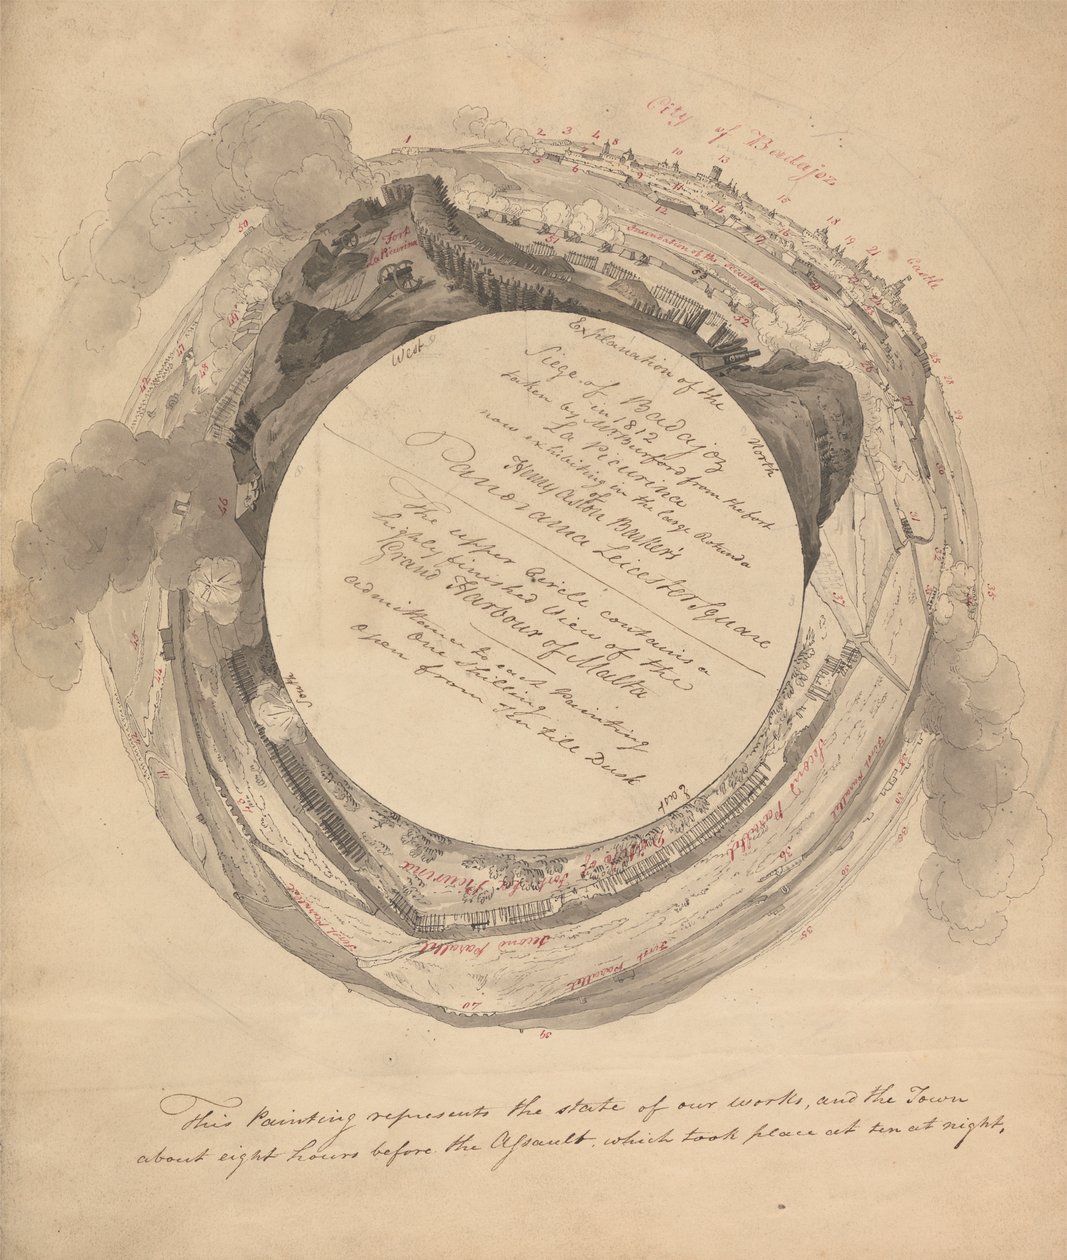 City of Badajoz
Castle
Fort
La Picurina
Inundation of the Rivillas
West
North
South
East
Explanation of the
Siege of Badajoz
in 1812
taken by Mr Burford from the fort
La Picurina
now exhibiting in the large Rotunda
of
Henry Aston Barker's
Panorama Leicester Square
The upper Circle contains a
highly finished View of the
Grand Harbour of Malta
admittance to each painting
One Shilling
open from ten till Dusk
Ditch of Fort La Picurina
Second Parallel
Second Parallel
First Parallel
First Parallel
First Parallel
This Painting represents the state of our works, and the Town
about eight hours before the Assault, which took place at ten at night.